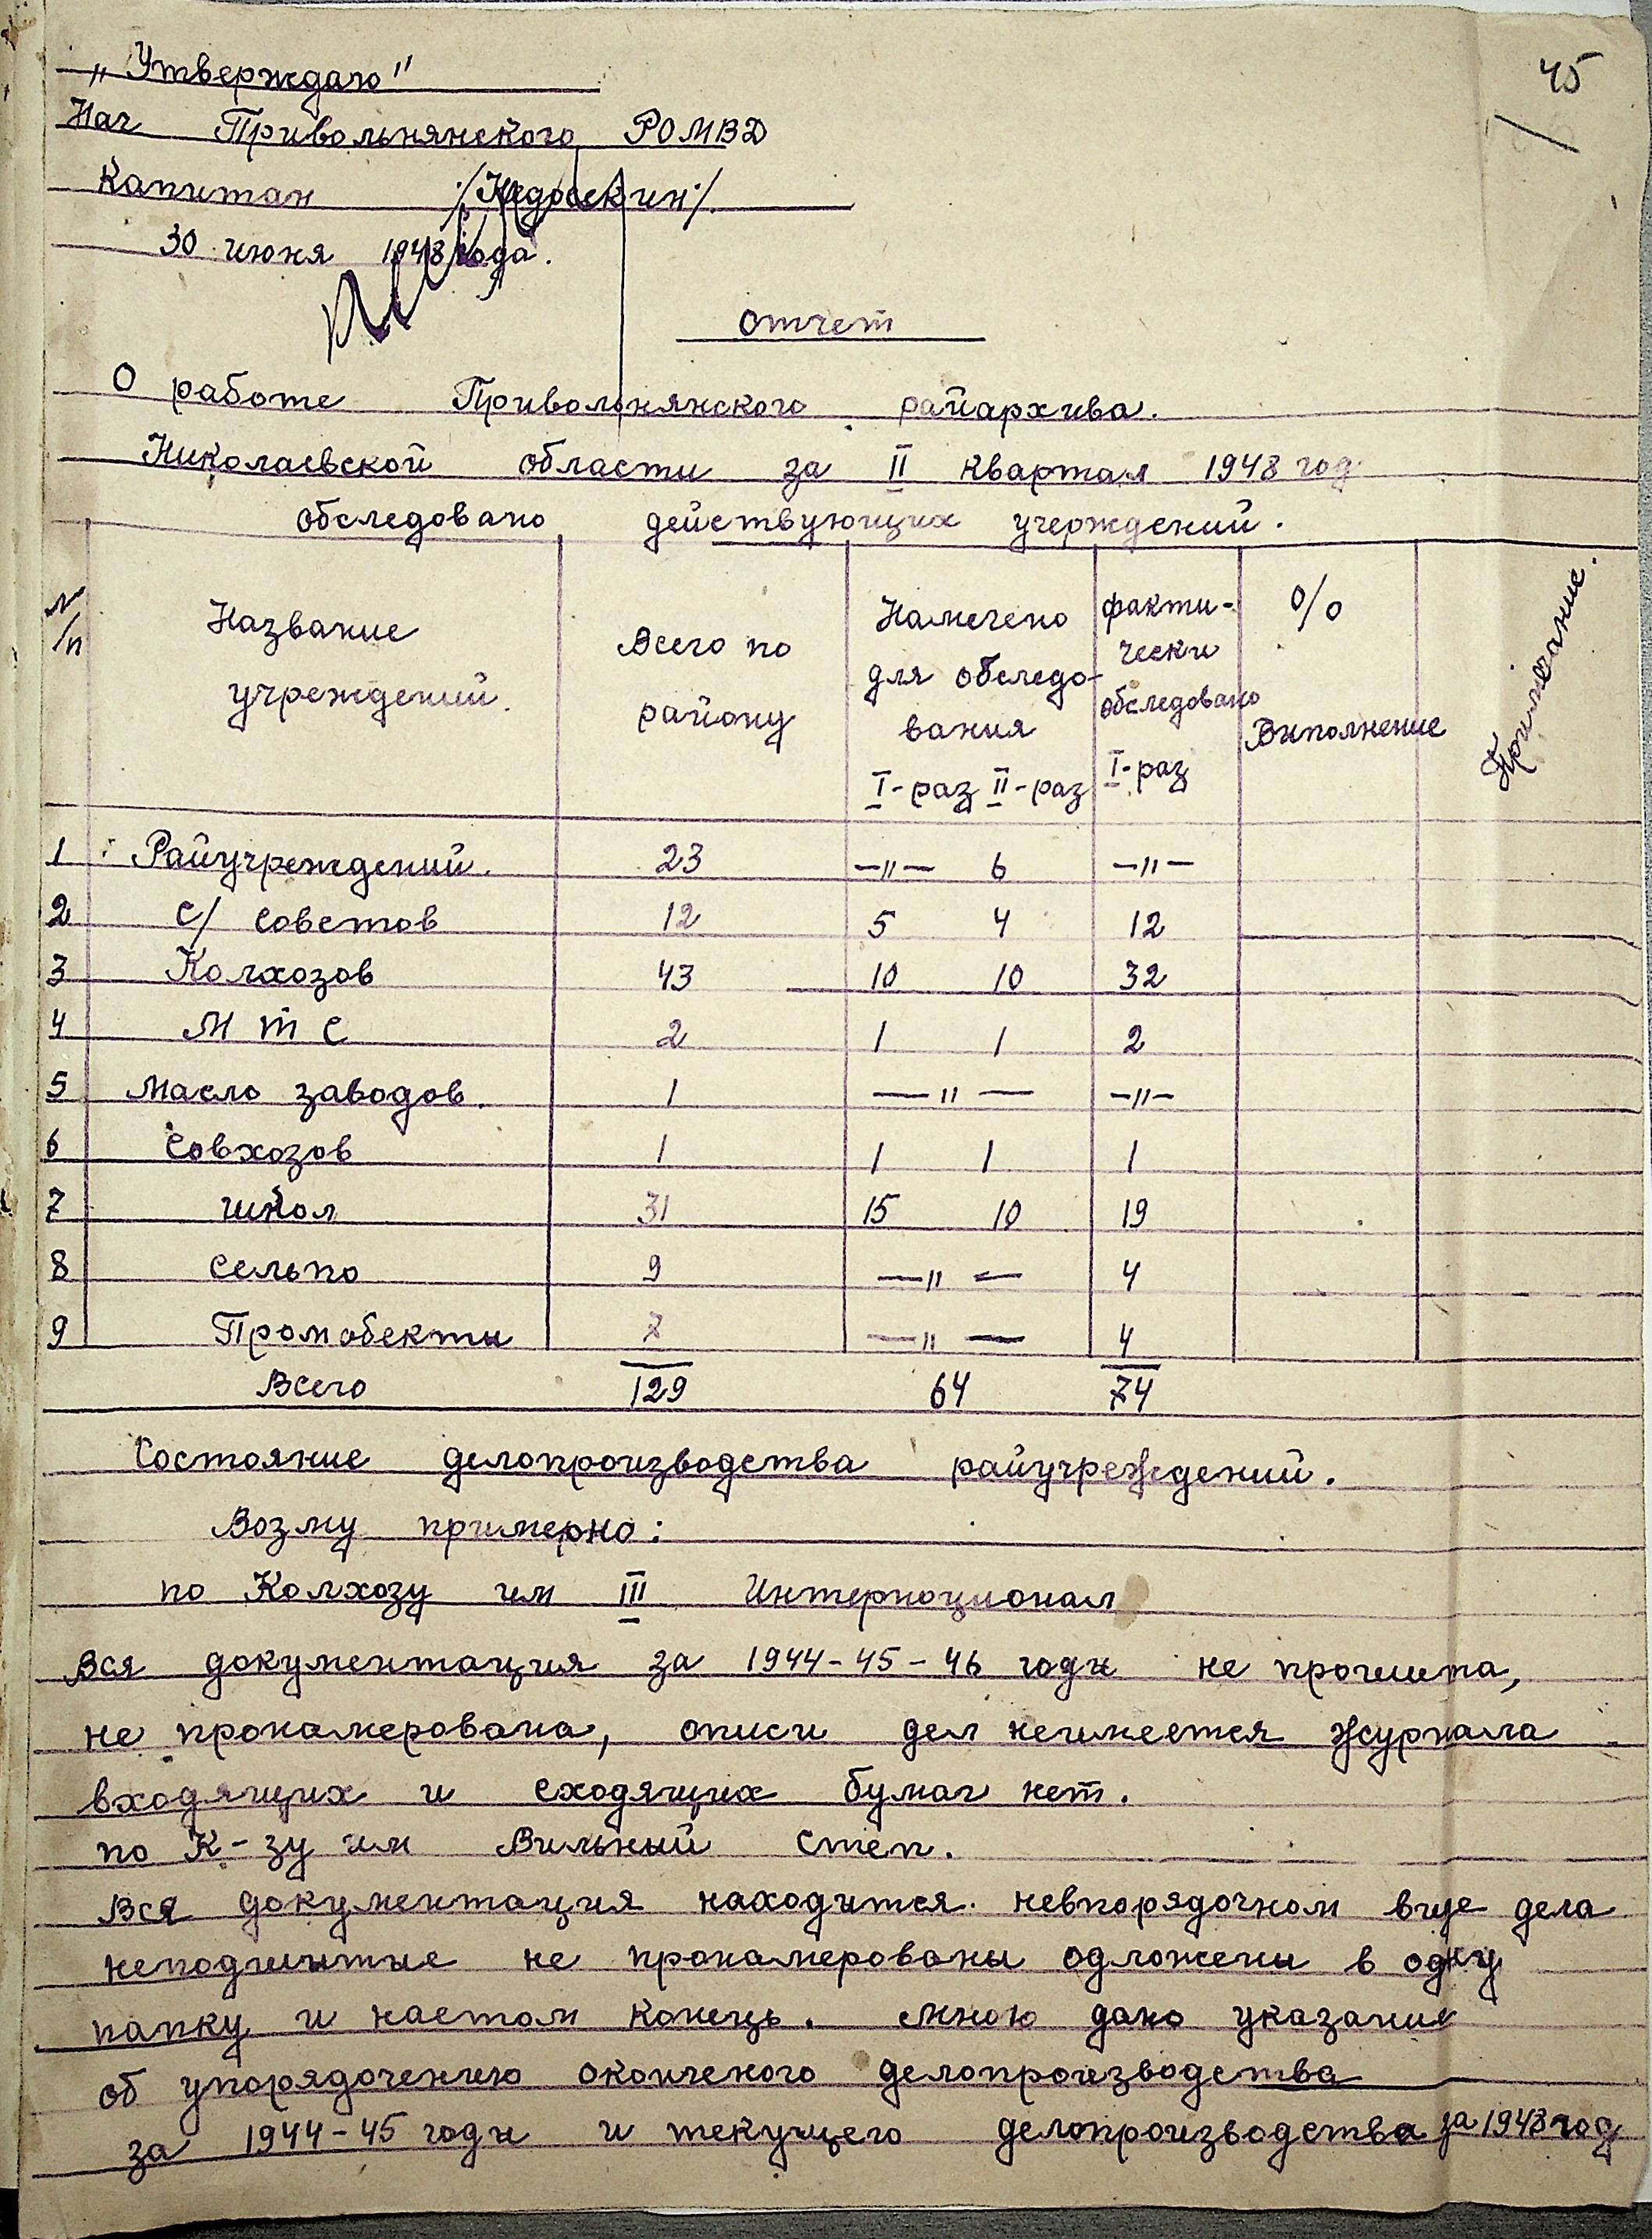 45
„Утверждаю"
Нач Привольнянского РОМВД
Капитан /Недосекин/.
30 июня 1948 года.
Отчет
О работе Привольнянского райархива.
Николаевской области за II квартал 1948 год.
Обследовано действующих учерждений.
№ п/п Название учреждений. Всего по району Намечено для обследования I-раз II-раз факти-чески обследовано I-раз % Выполнение Примечание.
1 Райучреждений. 23 —"— 6 —"—
2 С/Советов 12 5 4 12
3 Колхозов 43 10 10 32
4 М Т С 2 1 1 2
5 Масло заводов. 1 —"— —"—
6 Совхозов 1 1 1 1
7 школ 31 15 10 19
8 Сельпо 9 —"— 4
9 Промобекты 7 —"— 4
Всего 129 64 74
Состояние делопроизводства райучреждений.
Возму примерно:
по Колхозу им III Интерноционал
Вся документация за 1944-45-46 годы не прошита,
не пронамерована, описи дел неимеется журнала
входящих и сходящих бумаг нет.
по К-зу им Вильный Степ.
Вся документация находится невпорядочном виде дела
неподшытые не пронамерованы одложены в одну
папку и настом конець. мною дано указание
об упорядочению окончeного делопроизводства
за 1944-45 годы и текущего делопроизводства за 1948 год